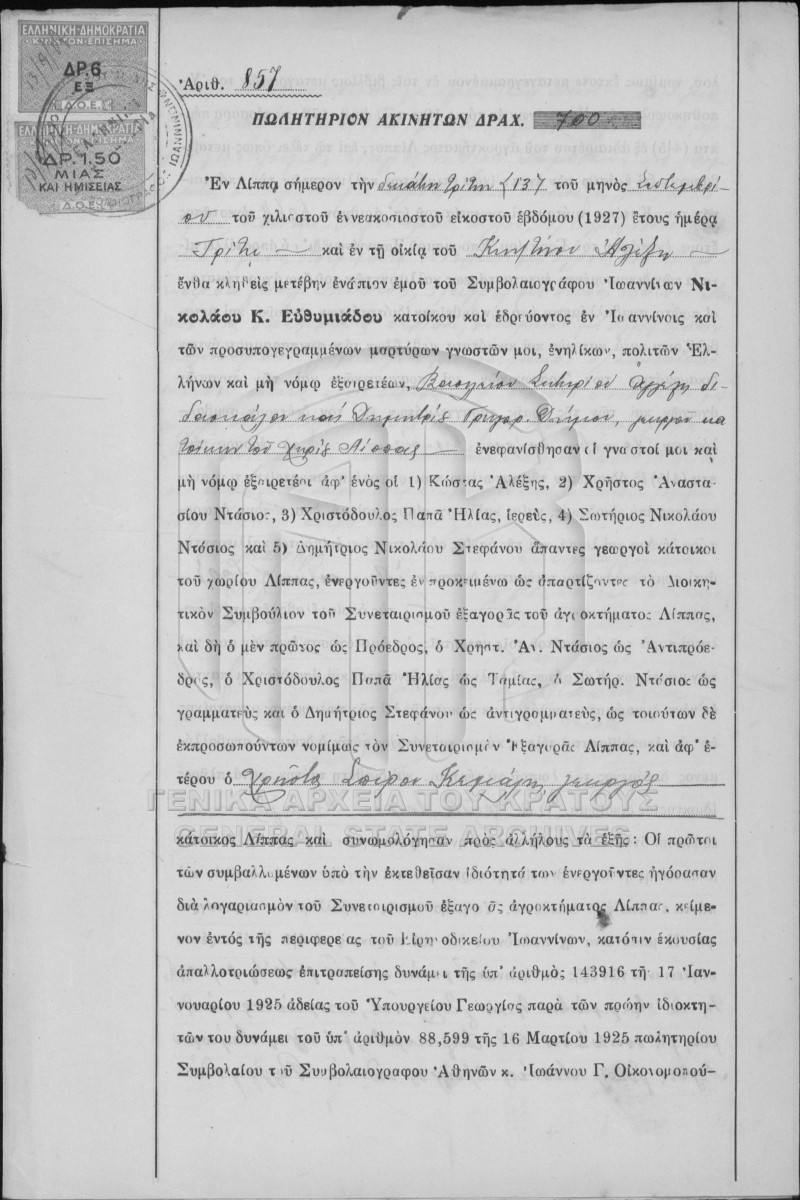 ΕΛΛΗΝΙΚΗ·ΔΗΜΟΚΡΑΤΙΑ
ΚΙΝΗΤΟΝ·ΕΠΙΣΗΜΑ
ΔΡ.6
ΕΞ
Δ.Ο.Ε.
ΕΛΛΗΝΙΚΗ·ΔΗΜΟΚΡΑΤΙΑ
ΔΡ.1.50
ΜΙΑΣ
ΚΑΙ ΗΜΙΣΕΙΑΣ
Δ.Ο.Ε.
Ἀριθ. 857
ΠΩΛΗΤΗΡΙΟΝ ΑΚΙΝΗΤΩΝ ΔΡΑΧ. 700
Ἐν Λίππᾳ σήμερον τὴν δεκάτην τρίτην (13) τοῦ μηνὸς Σεπτεμβρί-
ου τοῦ χιλιοστοῦ ἐννεακοσιοστοῦ εἰκοστοῦ ἑβδόμου (1927) ἔτους ἡμέρᾳ
Τρίτῃ — καὶ ἐν τῇ οἰκίᾳ τοῦ Κωστάκου Ἀλέξη —
ἔνθα κληθεὶς μετέβην ἐνώπιον ἐμοῦ τοῦ Συμβολαιογράφου Ἰωαννίνων Νι-
κολάου Κ. Εὐθυμιάδου κατοίκου καὶ ἑδρεύοντος ἐν Ἰωαννίνοις καὶ
τῶν προσυπογεγραμμένων μαρτύρων γνωστῶν μοι, ἐνηλίκων, πολιτῶν Ἑλ-
λήνων καὶ μὴ νόμῳ ἐξαιρετέων, Βασιλείου Σωτηρίου δι-
δασκάλου καὶ Δημητρίου Γρηγορ. γεωργοῦ κα
τοίκων τοῦ χωρίου Λίππας — ἐνεφανίσθησαν οἱ γνωστοί μοι καὶ
μὴ νόμῳ ἐξαιρετέοι ἀφ' ἑνὸς οἱ 1) Κώστας Ἀλέξης, 2) Χρῆστος Ἀναστα-
σίου Ντάσιος, 3) Χριστόδουλος Παπᾶ Ἠλίας, ἱερεύς, 4) Σωτήριος Νικολάου
Ντάσιος καὶ 5) Δημήτριος Νικολάου Στεφάνου ἅπαντες γεωργοὶ κάτοικοι
τοῦ χωρίου Λίππας, ἐνεργοῦντες ἐν προκειμένω ὡς ἀπαρτίζοντες τὸ Διοικη-
τικὸν Συμβούλιον τοῦ Συνεταιρισμοῦ ἐξαγορᾶς τοῦ ἀγροκτήματος Λίππας,
καὶ δὴ ὁ μὲν πρῶτος ὡς Πρόεδρος, ὁ Χρηστ. Ἀν. Ντάσιος ὡς Ἀντιπρόε-
δρος, ὁ Χριστόδουλος Παπᾶ Ἠλίας ὡς Ταμίας, ὁ Σωτήρ. Ντάσιος ὡς
γραμματεὺς καὶ ὁ Δημήτριος Στεφάνου ὡς ἀντιγραμματεὺς, ὡς τοιούτων δὲ
ἐκπροσωπούντων νομίμως τὸν Συνεταιρισμὸν Ἐξαγορᾶς Λίππας, καὶ ἀφ' ἑ-
τέρου ὁ Χρῆστος Σπύρου γεωργός
ΓΕΝΙΚΑ ΑΡΧΕΙΑ ΤΟΥ ΚΡΑΤΟΥΣ
GENERAL STATE ARCHIVES
κάτοικος Λίππας καὶ συνωμολόγησαν πρὸς ἀλλήλους τὰ ἑξῆς: Οἱ πρῶτοι
τῶν συμβαλλομένων ὑπὸ τὴν ἐκτεθεῖσαν ἰδιότητά των ἐνεργοῦντες ἠγόρασαν
διὰ λογαριασμὸν τοῦ Συνεταιρισμοῦ ἐξαγορᾶς ἀγροκτήματος Λίππας, κείμε-
νον ἐντὸς τῆς περιφερείας τοῦ Εἰρηνοδικείου Ἰωαννίνων, κατόπιν ἑκουσίας
ἀπαλλοτριώσεως ἐπιτραπείσης δυνάμει τῆς ὑπ' ἀριθμὸς 143916 τῇ 17 Ἰαν-
νουαρίου 1925 ἀδείας τοῦ Ὑπουργείου Γεωργίας παρὰ τῶν πρώην ἰδιοκτη-
τῶν του δυνάμει τοῦ ὑπ' ἀριθμὸν 88,599 τῆς 16 Μαρτίου 1925 πωλητηρίου
Συμβολαίου τοῦ Συμβολαιογραφου Ἀθηνῶν κ. Ἰωάννου Γ. Οἰκονομοπού-